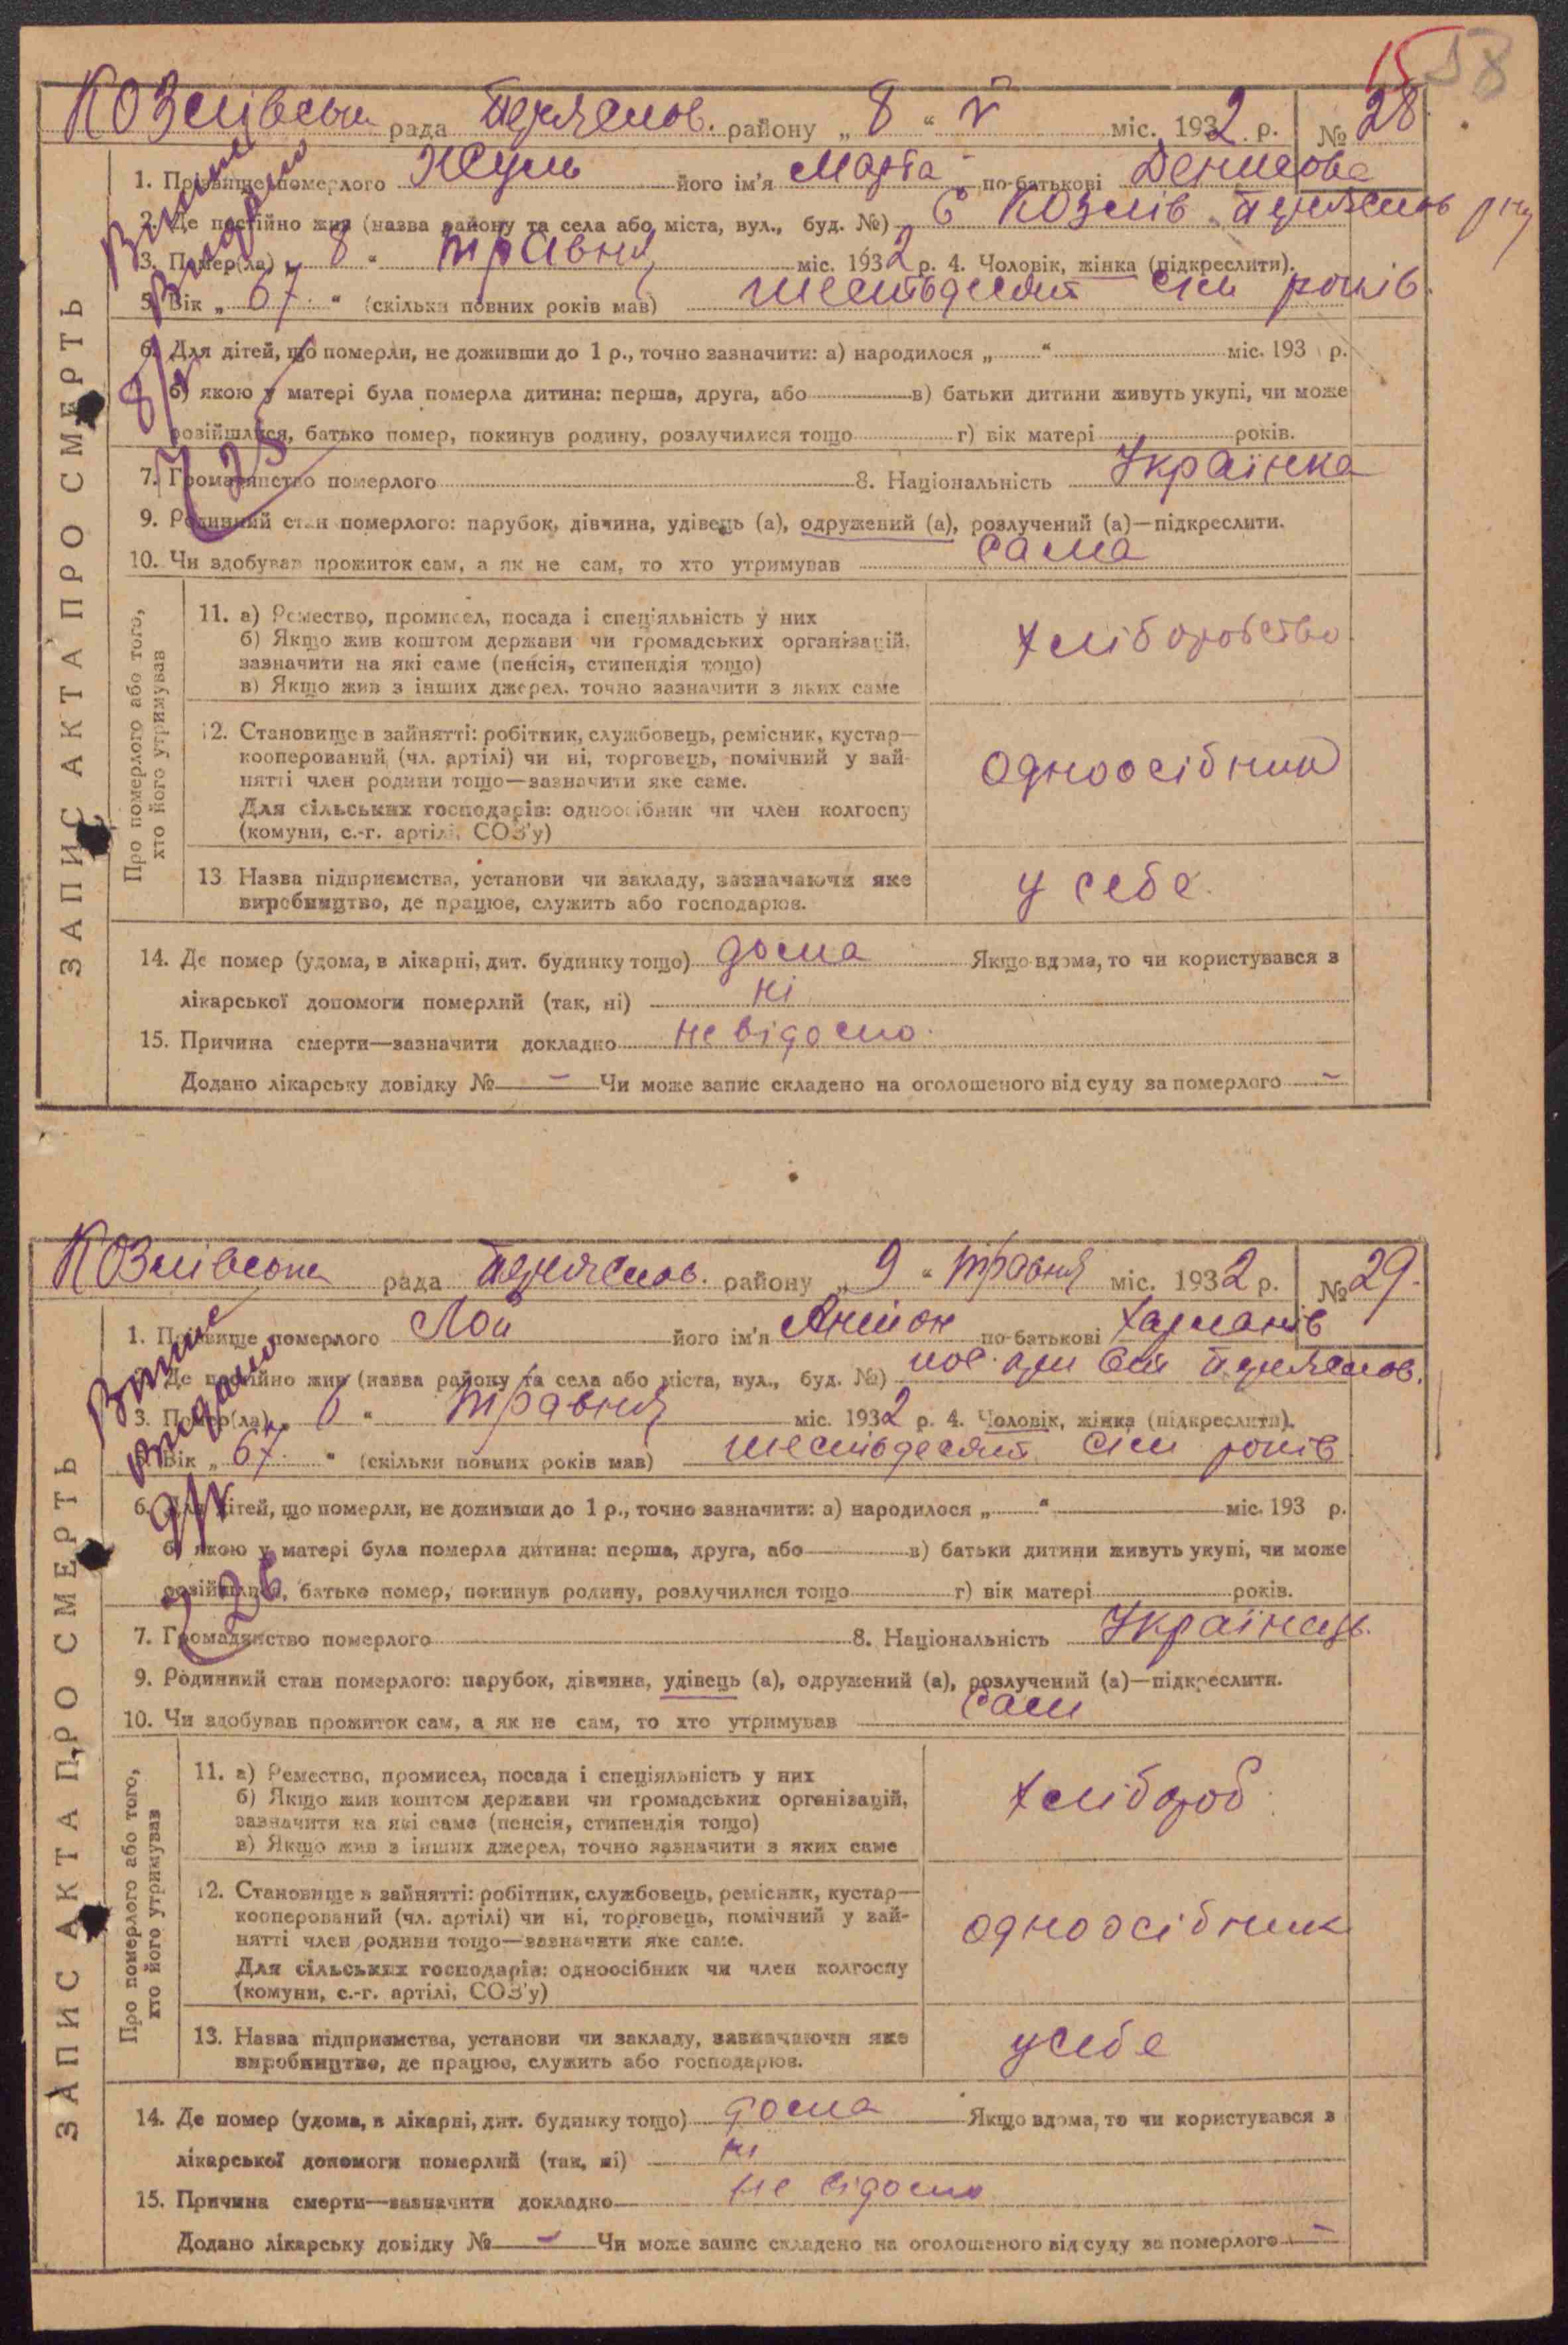 15 58
Козлівська рада Переяслов. району „ 8 “ V міс. 1932 р. № 28
1. Прізвище померлого Жуль його ім'я Марта по-батькові Денисова
2. Де постійно жив (назва району та села або міста, вул., буд. №) с Козлів Переяслов рну
3. Помер(ла) „ 8 “ травня міс. 1932 р. 4. Чоловік, жінка (підкреслити).
5. Вік „ 67 “ (скільки повних років мав) шестьдесят сім років
6. Для дітей, що померли, не доживши до 1 р., точно зазначити: а) народилося „ “ міс. 193 р.
б) якою у матері була померла дитина: перша, друга, або в) батьки дитини живуть укупі, чи може
розійшлися, батько помер, покинув родину, розлучилися тощо г) вік матері років.
7. Громадянство померлого 8. Національність Українка
9. Родинний стан померлого: парубок, дівчина, удівець (а), одружений (а), розлучений (а)—підкреслити.
10. Чи здобував прожиток сам, а як не сам, то хто утримував сама
Витяг
видано
8/V
25
ЗАПИС АКТА ПРО СМЕРТЬ
Про померлого або того,
хто його утримував
11. а) Ремество, промисел, посада і спеціяльність у них
б) Якщо жив коштом держави чи громадських організацій,
зазначити на які саме (пенсія, стипендія тощо)
в) Якщо жив з інших джерел, точно зазначити з яких саме
хліборобство
12. Становище в зайнятті: робітник, службовець, ремісник, кустар—
кооперований (чл. артілі) чи ні, торговець, помічний у зай-
нятті член родини тощо—зазначити яке саме.
Для сільських господарів: одноосібник чи член колгоспу
(комуни, с.-г. артілі, СОЗ'у)
одноосібник
13. Назва підприємства, установи чи закладу, зазначаючи яке
виробництво, де працює, служить або господарює.
у себе
14. Де помер (удома, в лікарні, дит. будинку тощо) дома Якщо вдома, то чи користувався з
лікарської допомоги померлий (так, ні) ні
15. Причина смерти—зазначити докладно невідомо
Додано лікарську довідку № – Чи може запис складено на оголошеного від суду за померлого –
Козлівська рада Переяслов. району „ 9 “ травня міс. 1932 р. № 29.
1. Прізвище померлого Лой його ім'я Антон по-батькові Харланів
2. Де постійно жив (назва району та села або міста, вул., буд. №) Переяслов.
3. Помер(ла) „ “ травня міс. 1932 р. 4. Чоловік, жінка (підкреслити).
5. Вік „ 67. “ (скільки повних років мав) шестьдесят сім років
6. Для дітей, що померли, не доживши до 1 р., точно зазначити: а) народилося „ “ міс. 193 р.
б) якою у матері була померла дитина: перша, друга, або в) батьки дитини живуть укупі, чи може
розійшлися, батько помер, покинув родину, розлучилися тощо г) вік матері років.
7. Громадянство померлого 8. Національність Українець.
9. Родинний стан померлого: парубок, дівчина, удівець (а), одружений (а), розлучений (а)—підкреслити.
10. Чи здобував прожиток сам, а як не сам, то хто утримував сам
Витяг
видано
9/V
26
ЗАПИС АКТА ПРО СМЕРТЬ
Про померлого або того,
хто його утримував
11. а) Ремество, промисел, посада і спеціяльність у них
б) Якщо жив коштом держави чи громадських організацій,
зазначити на які саме (пенсія, стипендія тощо)
в) Якщо жив з інших джерел, точно зазначити з яких саме
хлібороб
12. Становище в зайнятті: робітник, службовець, ремісник, кустар—
кооперований (чл. артілі) чи ні, торговець, помічний у зай-
нятті член родини тощо—зазначити яке саме.
Для сільських господарів: одноосібник чи член колгоспу
(комуни, с.-г. артілі, СОЗ'у)
одноосібник
13. Назва підприємства, установи чи закладу, зазначаючи яке
виробництво, де працює, служить або господарює.
у себе
14. Де помер (удома, в лікарні, дит. будинку тощо) дома Якщо вдома, то чи користувався з
лікарської допомоги померлий (так, ні) ні
15. Причина смерти—зазначити докладно не відомо
Додано лікарську довідку № – Чи може запис складено на оголошеного від суду за померлого –